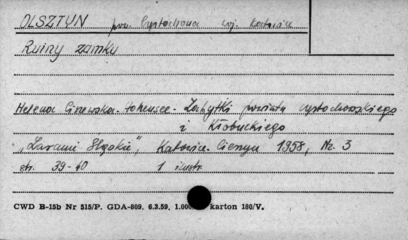 OLSZTYN pow. Częstochowa woj. Katowice
Ruiny zamku
Helena - Zabytki powiatu częstochowskiego
i Kłobuckiego
Katowice-Cieszyn 1958, Nr. 3
str. 39-40 1 ilustr.
CWD B-15b Nr 515/P. GDA-809. 6.3.59. 1.000 karton 180/V.